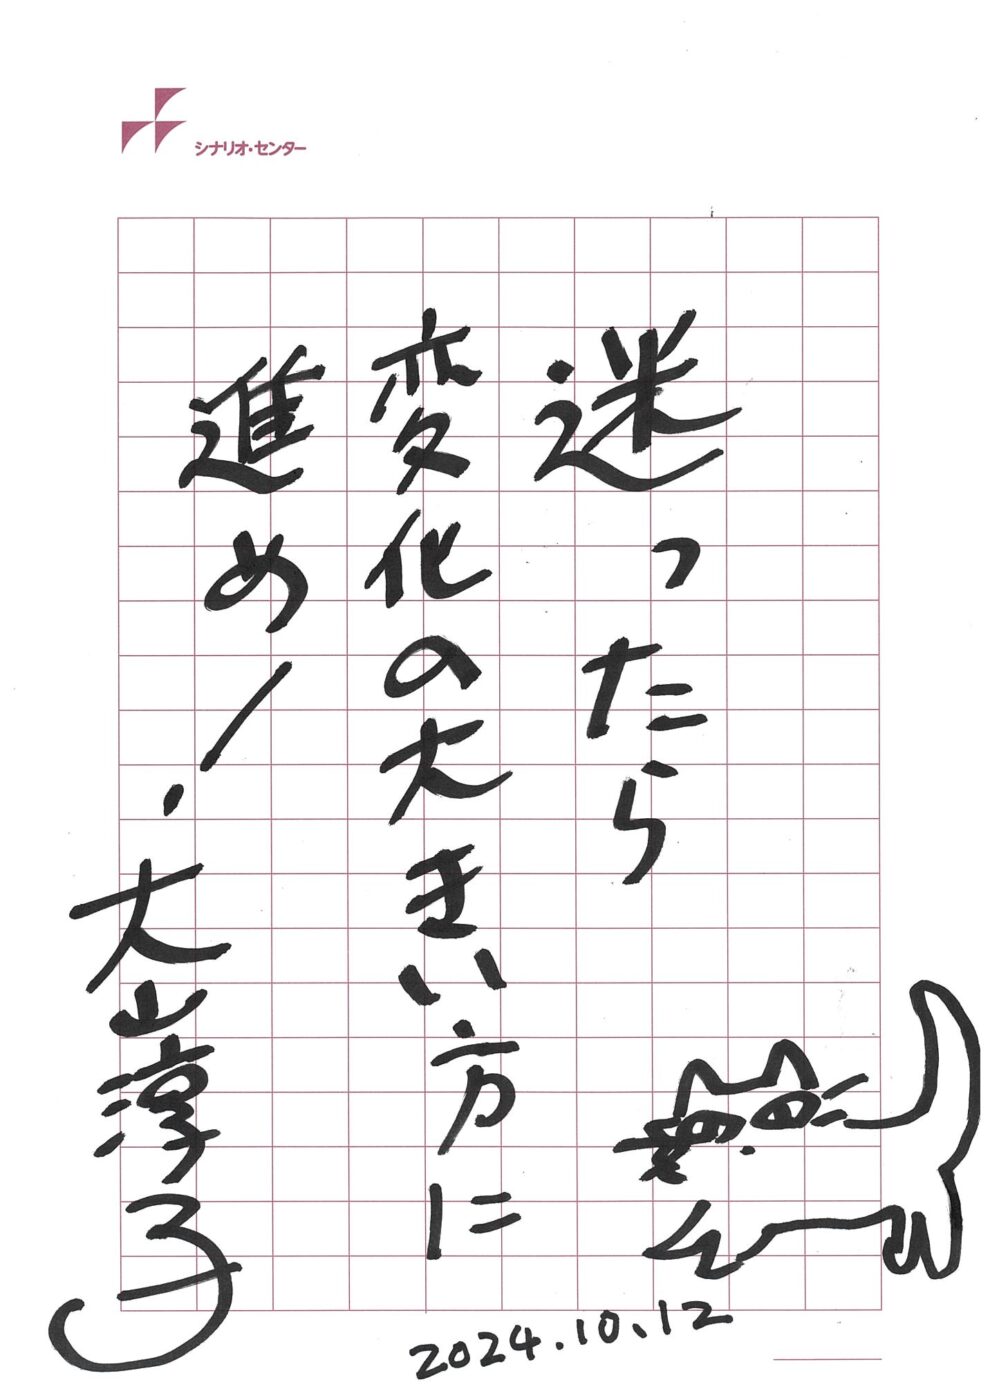 シナリオ・センター
迷ったら
変化の大きい方に
進め!
大山淳子
2024.10.12